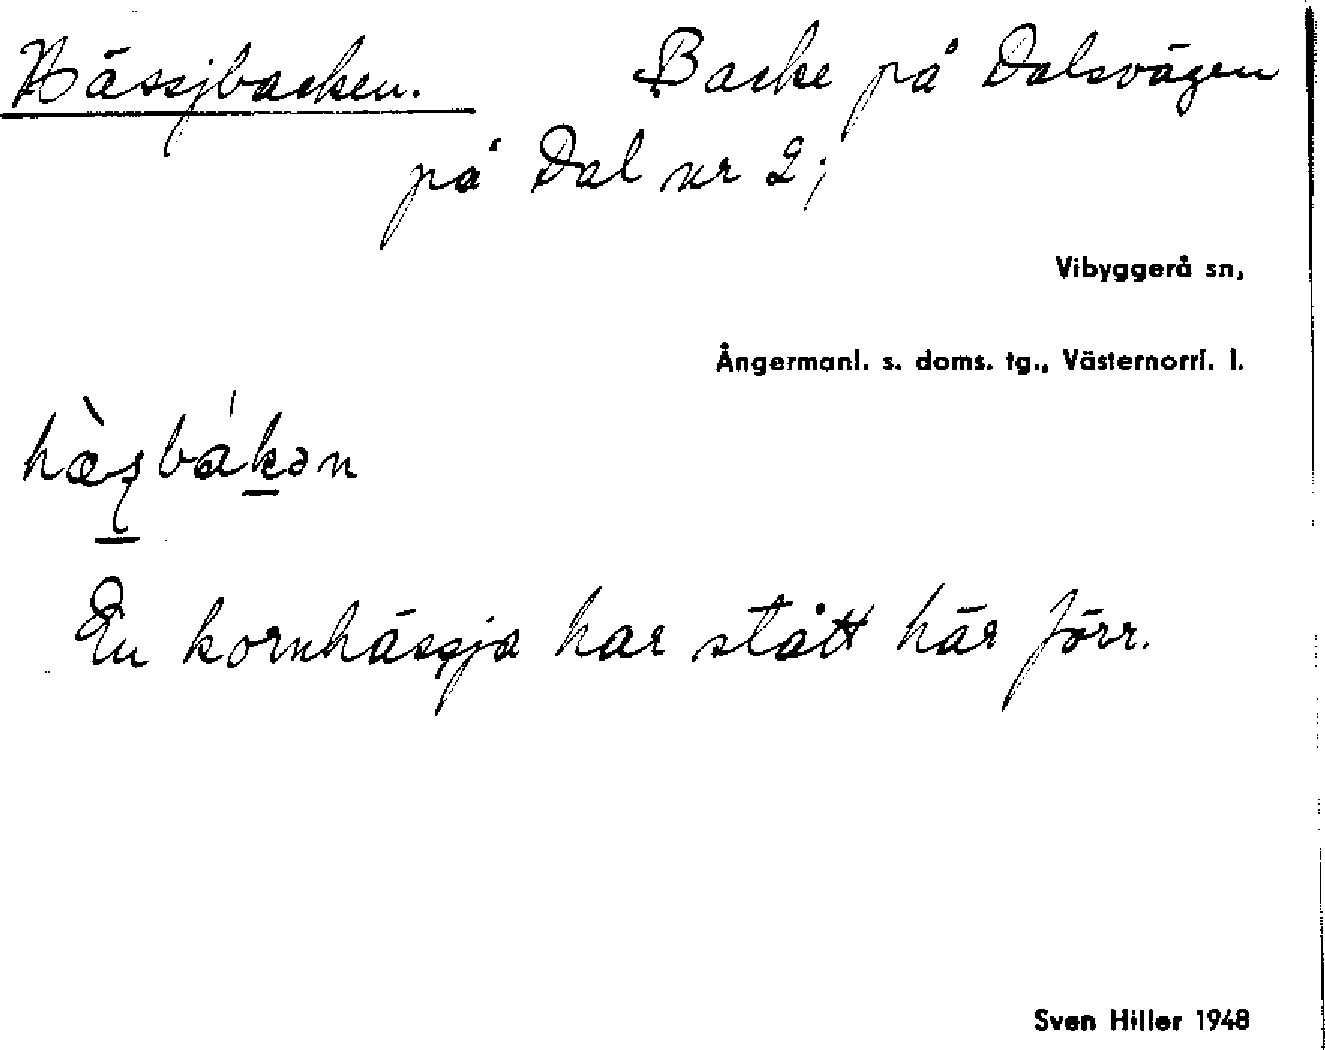 Hässjbacken. Backe på Dalsvägen
på Dal nr 2;
Vibyggerå sn,
Ångermanl. s. doms. tg., Västernorrl. l.
En kornhässja har stått här förr.
Sven Hiller 1948